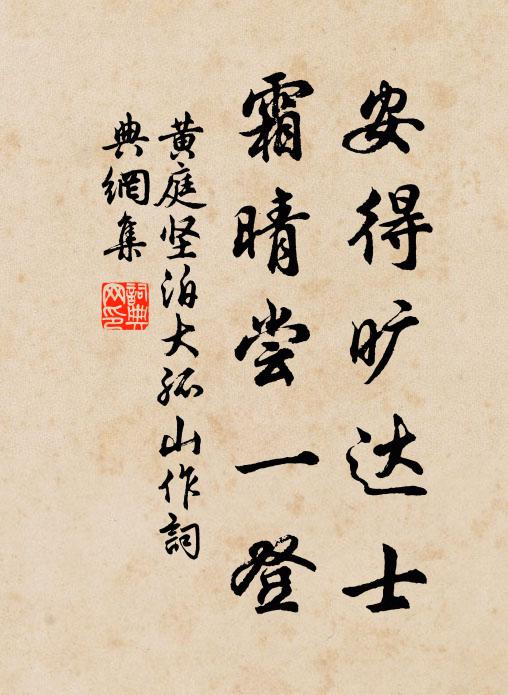 安得旷达士
霜晴尝一登
黄庭坚泊大孤山作詞
典網集
詞典
网印